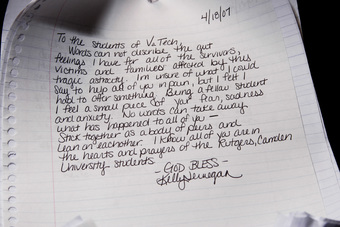 4/18/07
To the students of V. Tech,
Words can not describe the gut
feelings I have for all of the survivors,
victims and families affected by this
tragic atrocity. I'm unsure of what I could
say to help all of you in pain, but I felt I
had to offer something. Being a fellow student
I feel a small piece of your fear, sadness
and anxiety. No words can take away
what has happened to all of you —
Stick together as a body of peers and
lean on eachother. I know all of you are in
the hearts and prayers of the Rutgers, Camden
University students.
- GOD BLESS -
Kelly